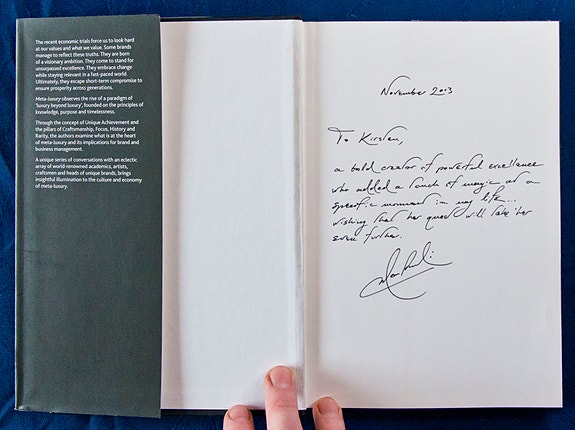 The recent economic trials force us to look hard
at our values and what we value. Some brands
manage to reflect these truths. They are born
of a visionary ambition. They come to stand for
unsurpassed excellence. They embrace change
while staying relevant in a fast-paced world.
Ultimately, they escape short-term compromise to
ensure prosperity across generations.
Meta-luxury observes the rise of a paradigm of
'luxury beyond luxury', founded on the principles of
knowledge, purpose and timelessness.
Through the concept of Unique Achievement and
the pillars of Craftsmanship, Focus, History and
Rarity, the authors examine what is at the heart
of meta-luxury and its implications for brand and
business management.
A unique series of conversations with an eclectic
array of world-renowned academics, artists,
craftsmen and heads of unique brands, brings
insightful illumination to the culture and economy
of meta-luxury.
November 2013
To Kirsten,
a bold creator of powerful excellence
who added a touch of magic at a
specific moment in my life...
wishing that her quest will take her
even further.